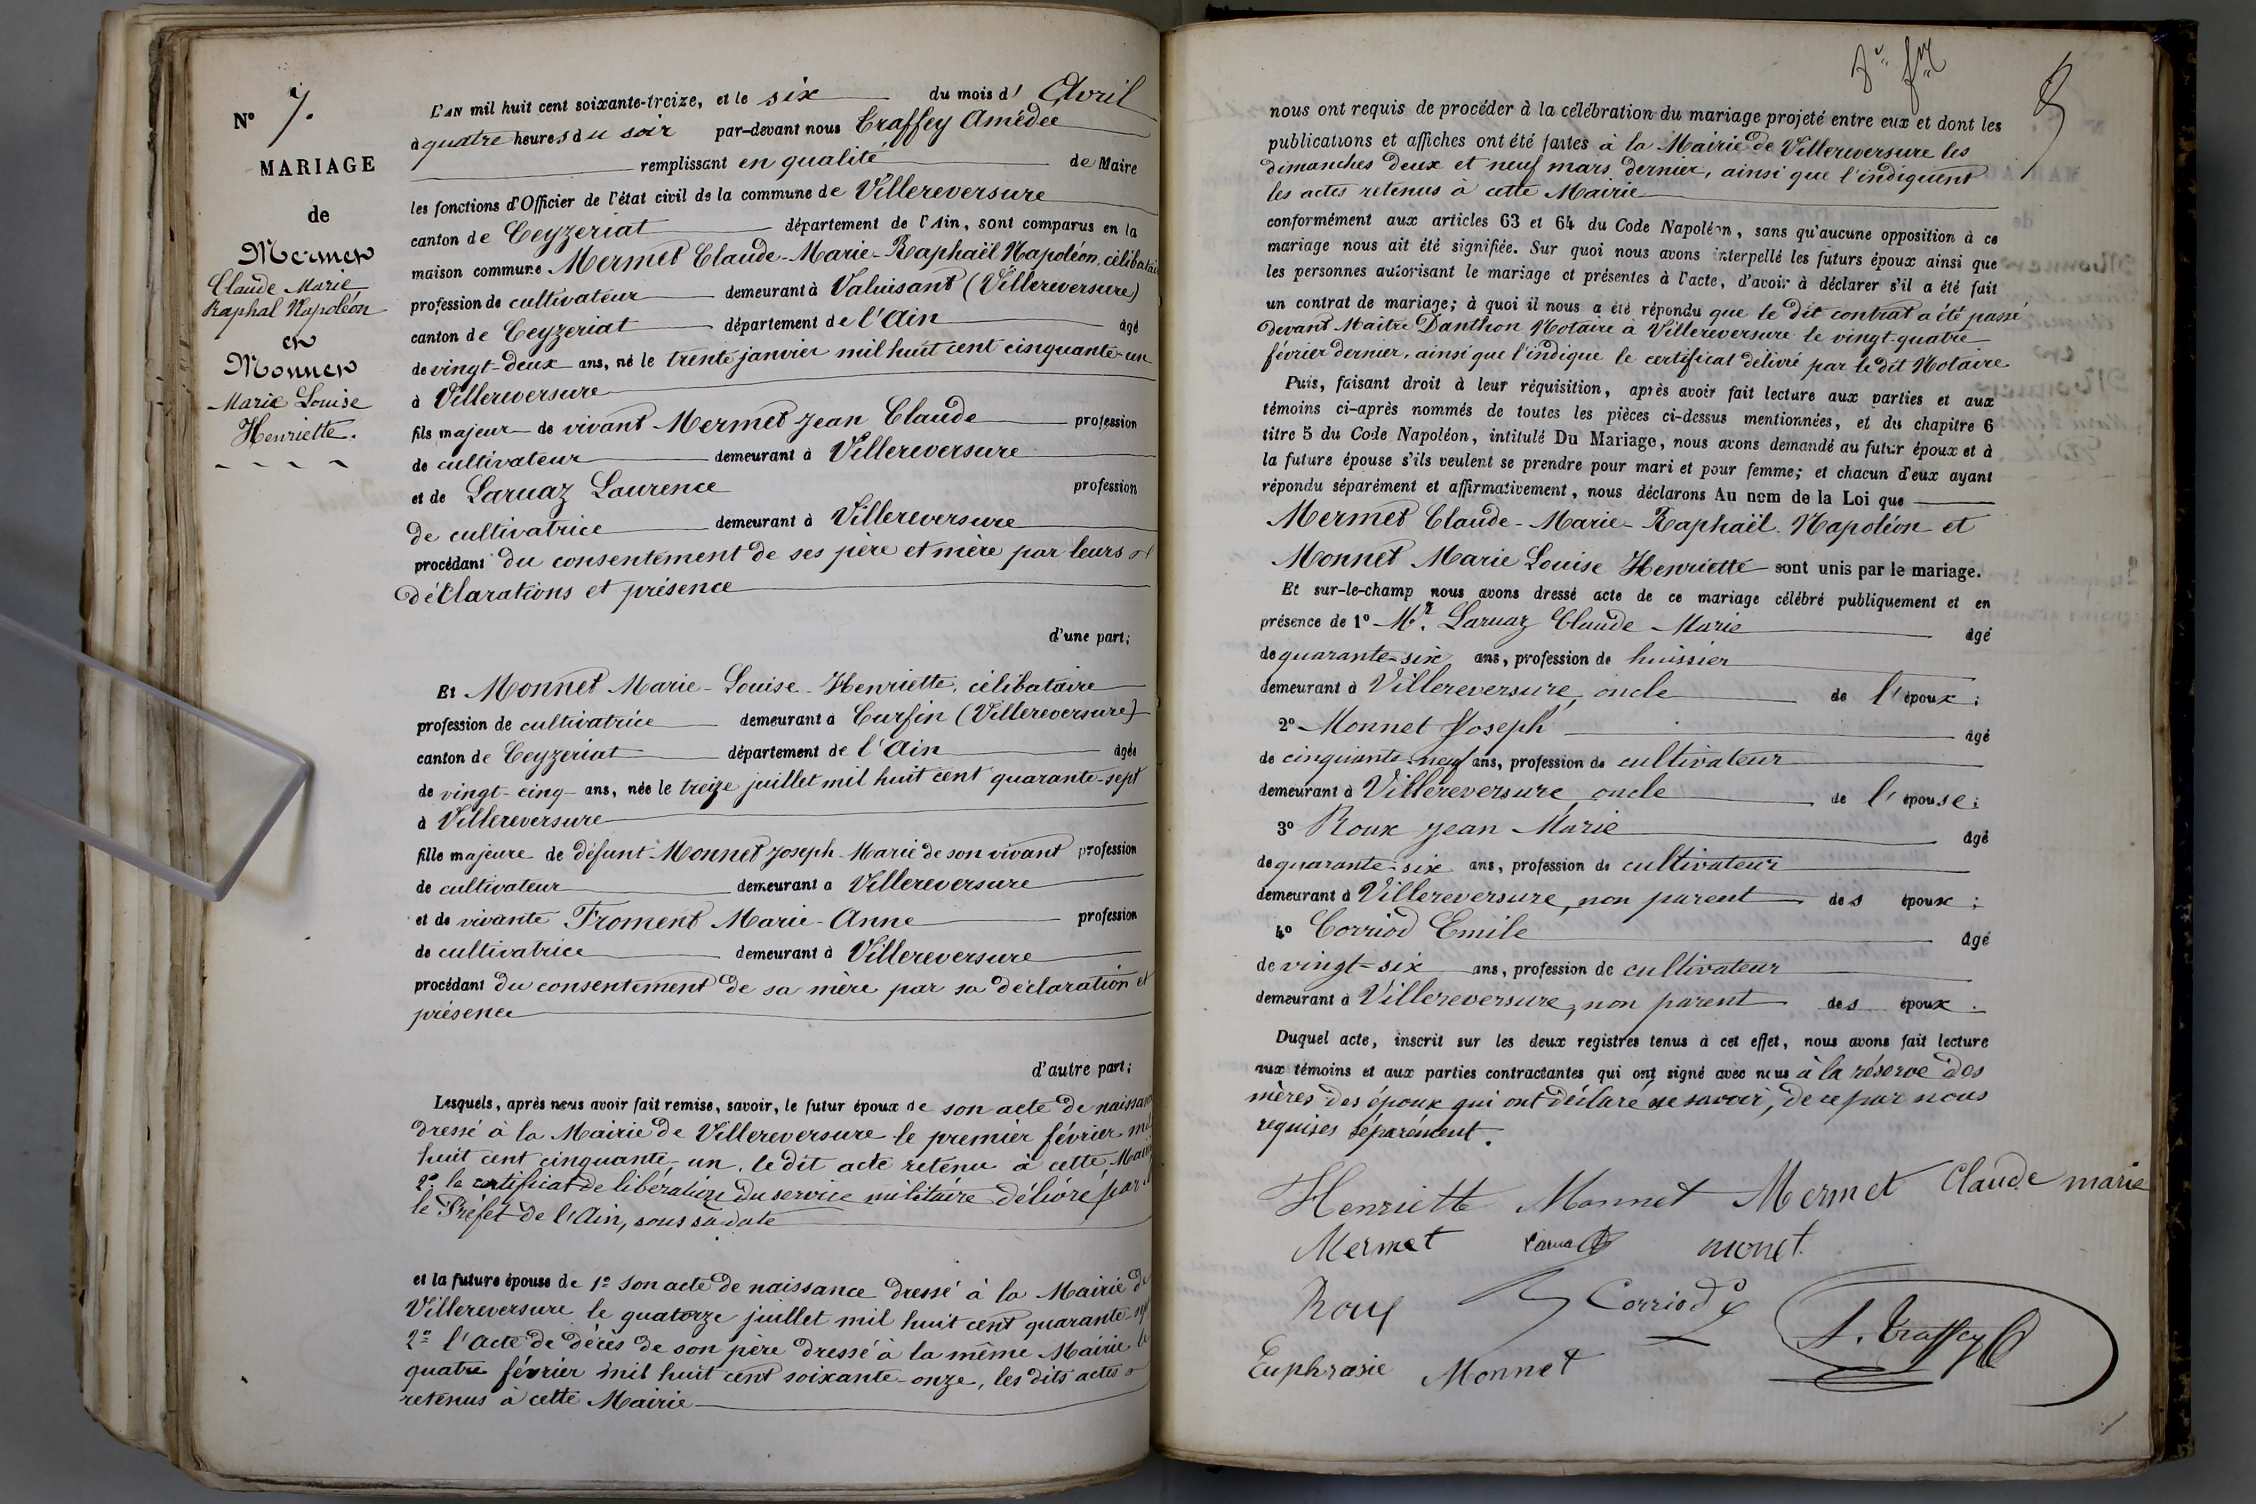 N° 7.
MARIAGE
de
Mermet
Claude Marie
Raphal Napoléon
et
Monnet
Marie Louise
Henriette.
L'AN mil huit cent soixante-treize, et le six du mois d' Avril
à quatre heures du soir par-devant nous Traffey Amédée
remplissant en qualité de Maire
les fonctions d'Officier de l'état civil de la commune de Villereversure
canton de Ceyzeriat département de l'Ain, sont comparus en la
maison commune Mermet Claude-Marie-Raphaël Napoléon, célibataire
profession de cultivateur demeurant à Valuisant (Villereversure)
canton de Ceyzeriat département de l'Ain âgé
de vingt-deux ans, né le trente janvier mil huit cent cinquante-un
à Villereversure
fils majeur de vivant Mermet Jean Claude profession
de cultivateur demeurant à Villereversure
et de Laruaz Laurence profession
de cultivatrice demeurant à Villereversure
procédant du consentement de ses père et mère par leurs
déclarations et présence
d'une part;
Et Monnet Marie-Louise-Henriette, célibataire
profession de cultivatrice demeurant à Curfin (Villereversure)
canton de Ceyzeriat département de l'Ain âgée
de vingt-cinq ans, née le treize juillet mil huit cent quarante-sept
à Villereversure
fille majeure de défunt Monnet Joseph-Marie de son vivant profession
de cultivateur demeurant à Villereversure
et de vivante Froment Marie-Anne profession
de cultivatrice demeurant à Villereversure
procédant du consentement de sa mère par sa déclaration et
présence
d'autre part;
Lesquels, après nous avoir fait remise, savoir, le futur époux de son acte de naissance
dressé à la Mairie de Villereversure le premier février mil
huit cent cinquante-un, le dit acte retenu à cette Mairie
2° le certificat de libération du service militaire délivré par
le Préfet de l'Ain, sous sa date
et la future épouse de 1° son acte de naissance dressé à la Mairie de
Villereversure le quatorze juillet mil huit cent quarante-sept
2° l'acte de décès de son père dressé à la même Mairie le
quatre février mil huit cent soixante-onze, les dits actes
retenus à cette Mairie
nous ont requis de procéder à la célébration du mariage projeté entre eux et dont les
publications et affiches ont été faites à la Mairie de Villereversure les
dimanches deux et neuf mars dernier, ainsi que l'indiquent
les actes retenus à cette Mairie
conformément aux articles 63 et 64 du Code Napoléon, sans qu'aucune opposition à ce
mariage nous ait été signifiée. Sur quoi nous avons interpellé les futurs époux ainsi que
les personnes autorisant le mariage et présentes à l'acte, d'avoir à déclarer s'il a été fait
un contrat de mariage; à quoi il nous a été répondu que le dit contrat a été passé
devant Maître Danthon Notaire à Villereversure le vingt-quatre
février dernier, ainsi que l'indique le certificat délivré par le dit Notaire
Puis, faisant droit à leur réquisition, après avoir fait lecture aux parties et aux
témoins ci-après nommés de toutes les pièces ci-dessus mentionnées, et du chapitre 6
titre 5 du Code Napoléon, intitulé Du Mariage, nous avons demandé au futur époux et à
la future épouse s'ils veulent se prendre pour mari et pour femme; et chacun d'eux ayant
répondu séparément et affirmativement, nous déclarons Au nom de la Loi que
Mermet Claude-Marie-Raphaël Napoléon et
Monnet Marie Louise Henriette sont unis par le mariage.
Et sur-le-champ nous avons dressé acte de ce mariage célébré publiquement et en
présence de 1° Mr. Laruaz Claude-Marie âgé
de quarante-six ans, profession de huissier
demeurant à Villereversure, oncle de l'époux;
2° Monnet Joseph âgé
de cinquante-neuf ans, profession de cultivateur
demeurant à Villereversure, oncle de l'épouse;
3° Roux Jean Marie âgé
de quarante-six ans, profession de cultivateur
demeurant à Villereversure, non parent des époux;
4° Corriod Emile âgé
de vingt-six ans, profession de cultivateur
demeurant à Villereversure, non parent des époux.
Duquel acte, inscrit sur les deux registres tenus à cet effet, nous avons fait lecture
aux témoins et aux parties contractantes qui ont signé avec nous à la réserve des
mères des époux qui ont déclaré ne savoir, de ce par nous
requises séparément.
Henriette Monnet Mermet Claude marie
Mermet Laruaz monet
Roux Corriod
A. Traffey
Euphrasie Monnet